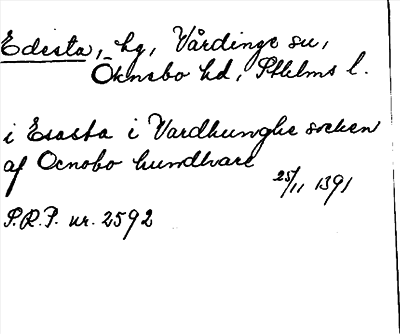 Edesta, hg, Vårdinge sn,
Öknebo hd, Sthlms l.
i Esasta i Vardhunghe socken
af Ocnobo hundhare
25/11 1391
P.R.P. nr. 2592